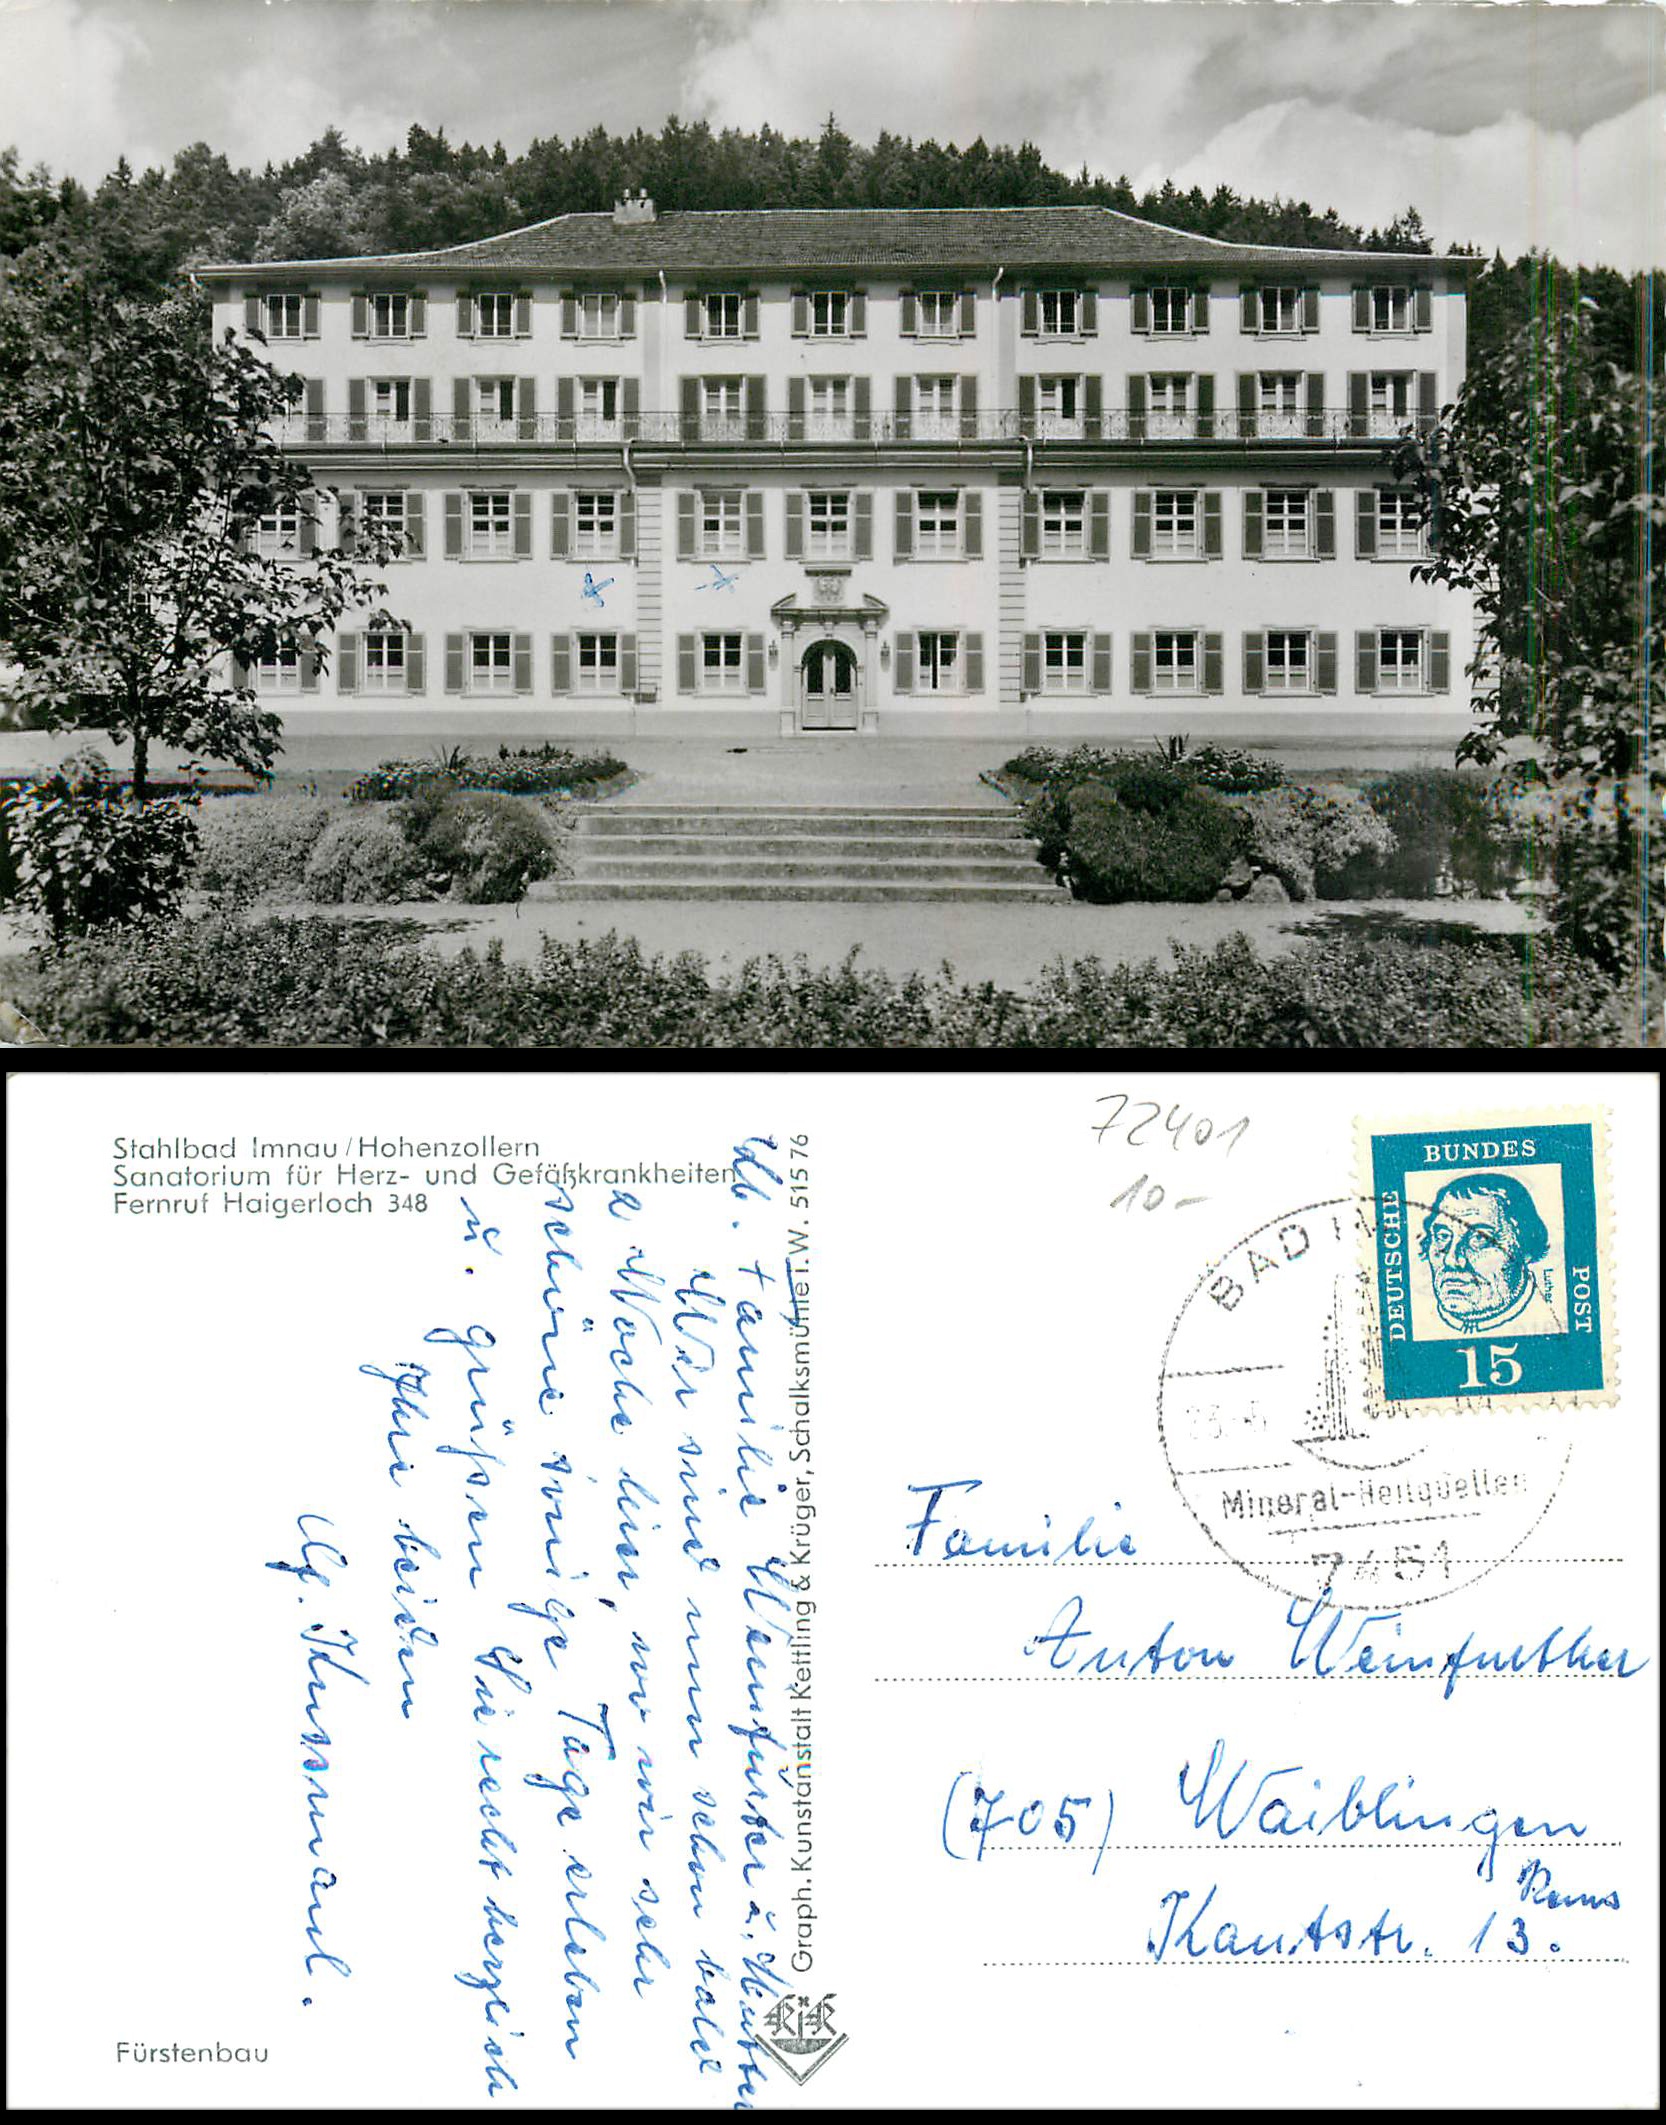 Stahlbad Imnau/Hohenzollern
Sanatorium für Herz- und Gefäßkrankheiten
Fernruf Haigerloch 348
Lb. Familie Weinfurter u. Mutter
Wir sind nun schon bald
2 Woche hier, wo wir sehr
schöne sonige Tage erleben
u. grüßen Sie recht herzlich
Ihre beiden
Kussmaul.
Fürstenbau
Graph. Kunstanstalt Kettling & Krüger, Schalksmühle i.W. 51576
KiK
72401
10-
DEUTSCHE BUNDES POST
Luther
15
BAD IM
Mineral-Heilquellen
7451
Familie
Anton Weinfurther
(705) Waiblingen
Rems
Kantstr. 13.